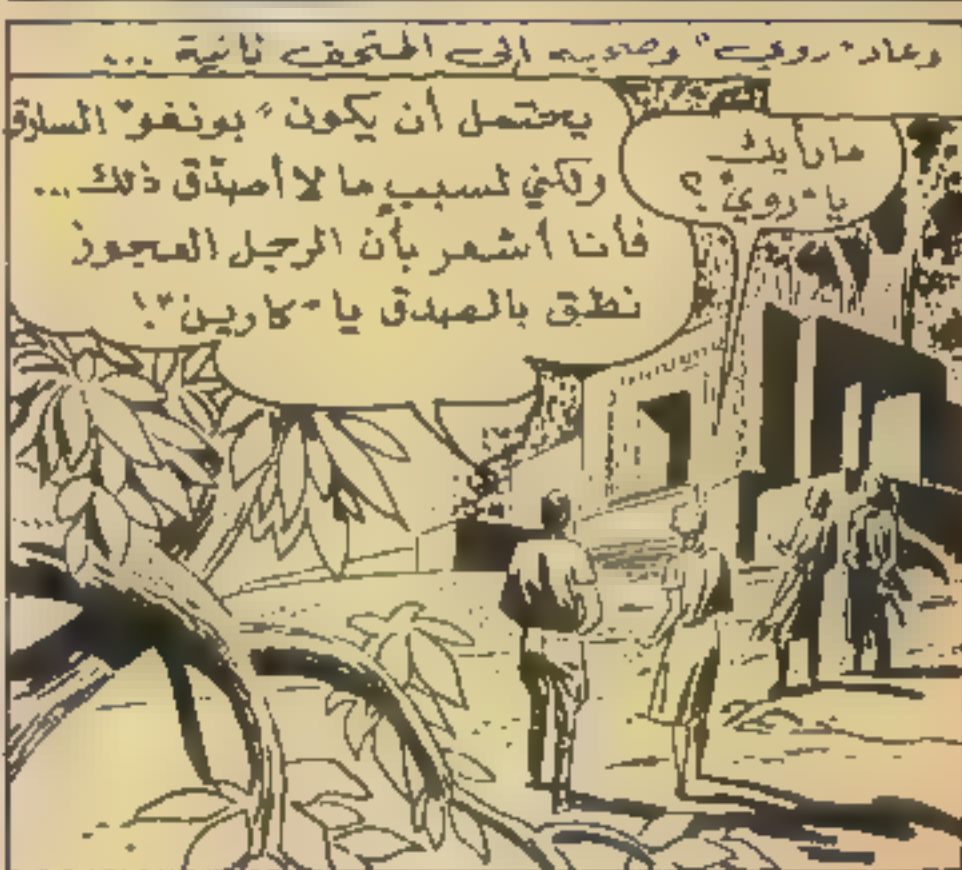 وعاد "روي" وصحبه إلى المتحف ثانية ...
ما رأيك
يا "روي" ؟
يحتمل أن يكون "بونغو" السارق
ولكني لسبب ما لا أصدّق ذلك ...
فأنا أشعر بأن الرجل العجوز
نطق بالصدق يا "كارين" !